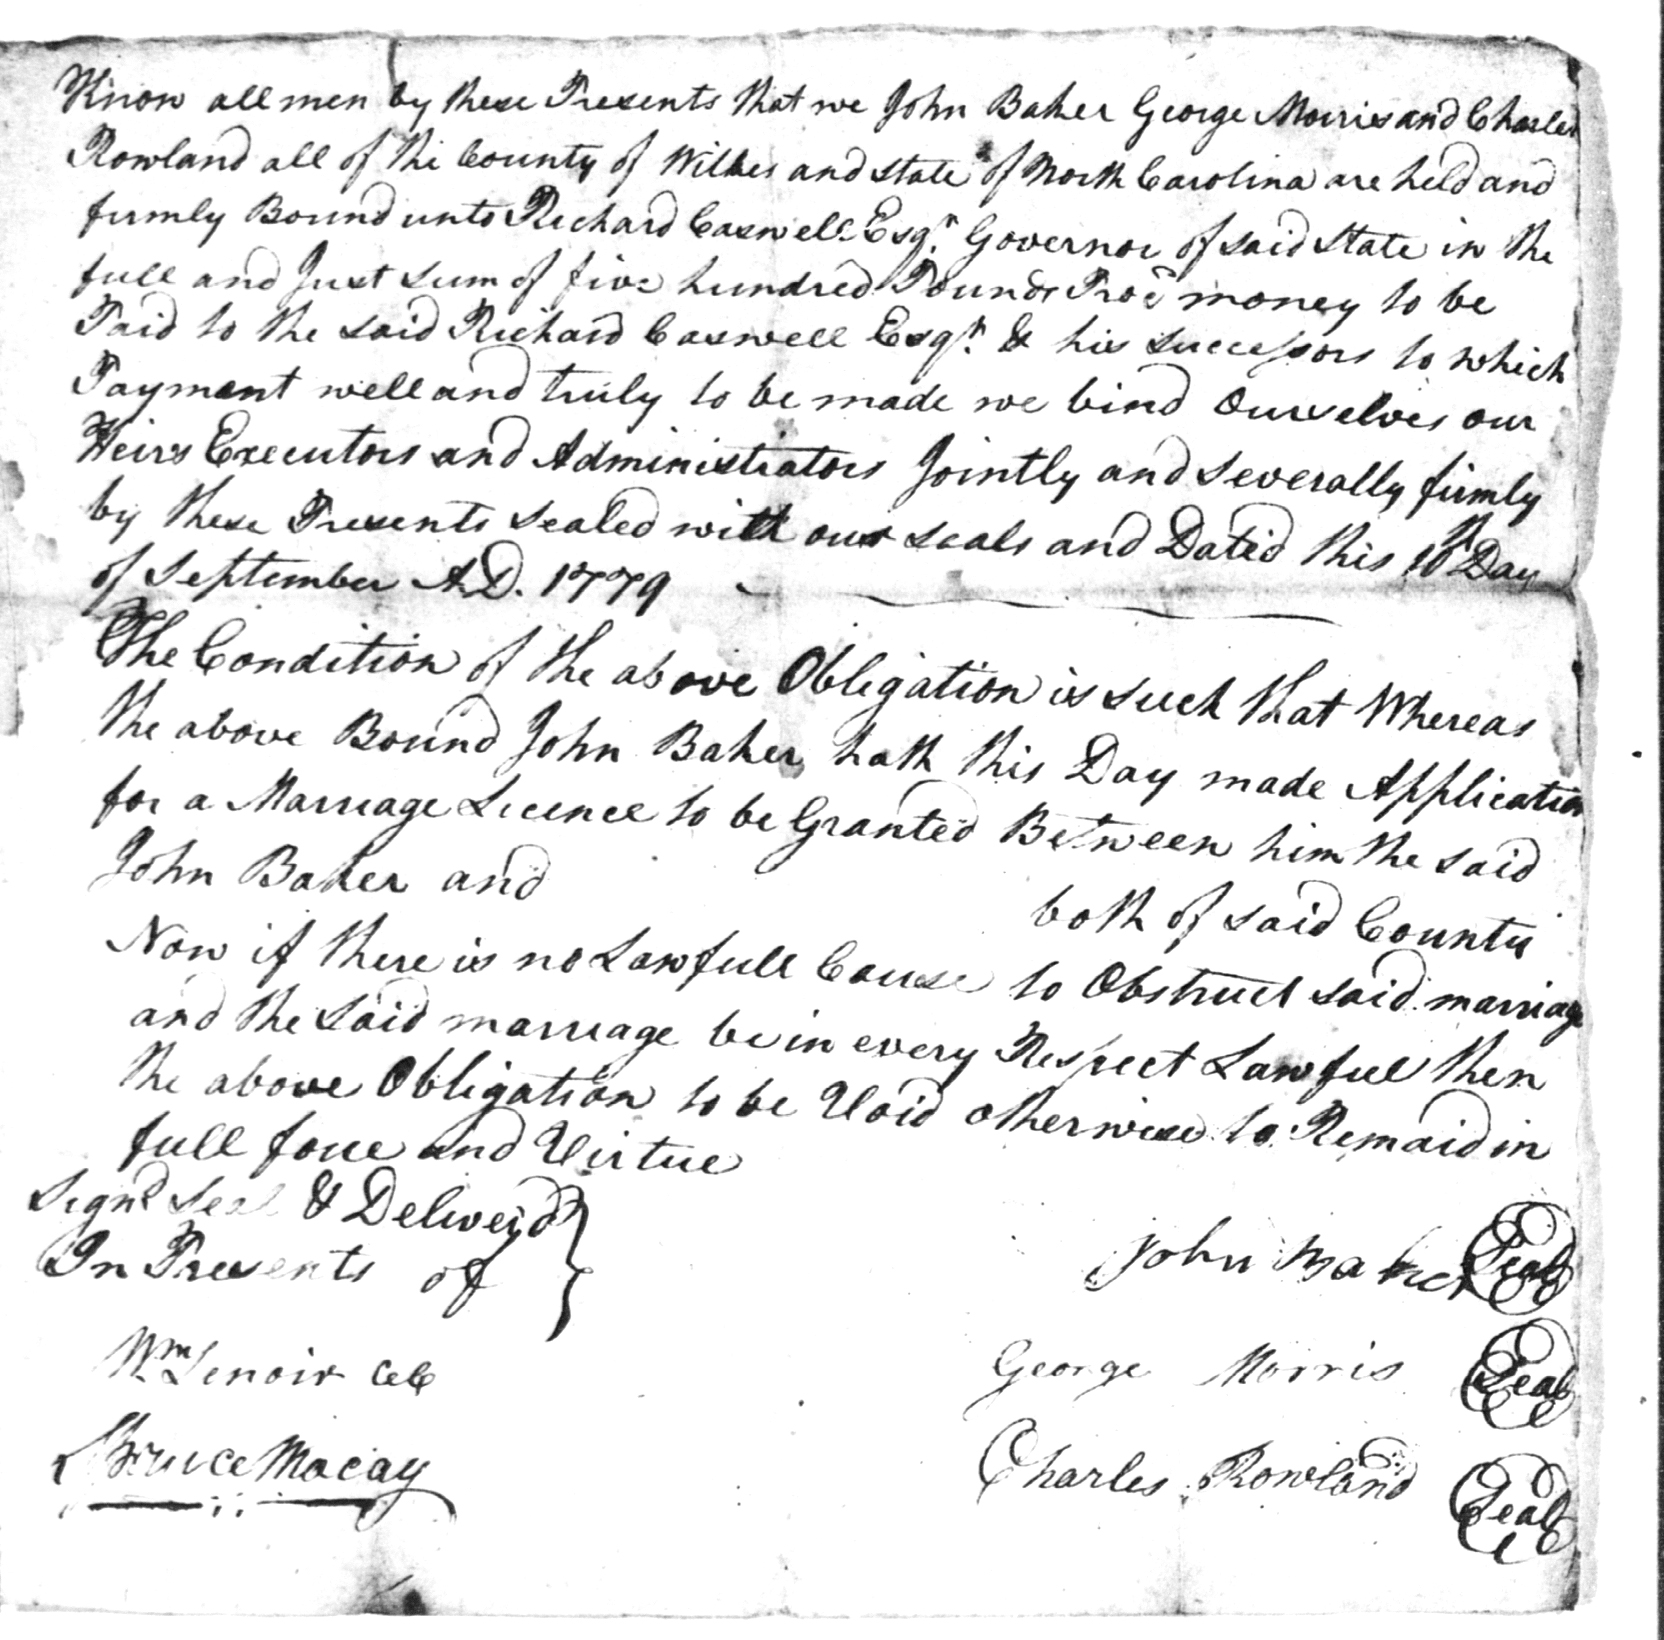 Know all men by these Presents that we John Baker George Morris and Charles
Rowland all of the County of Wilkes and State of North Carolina are held and
firmly Bound unto Richard Caswell Esqr. Governor of said State in the
full and Just sum of five hundred Pounds Procd money to be
Paid to the said Richard Caswell Esqr. & his successors to which
Payment well and truly to be made we bind Ourselves our
Heirs Executors and Administrators Jointly and Severally firmly
by these Presents sealed with our seals and Dated this 10th Day
of September A.D. 1779
The Condition of the above Obligation is such that Whereas
the above Bound John Baker hath this Day made Application
for a Marriage Licence to be Granted Between him the said
John Baker and both of said County
Now if there is no Lawfull Cause to Obstruct said marriage
and the said marriage be in every Respect Lawfull then
the above Obligation to be Void otherwise to Remaid in
full force and Virtue
Signd Seal & Deliver'd
In Presents of
John Baker Seal
Wm. Lenoir CC
George Morris Seal
Bruce Macay
Charles Rowland Seal